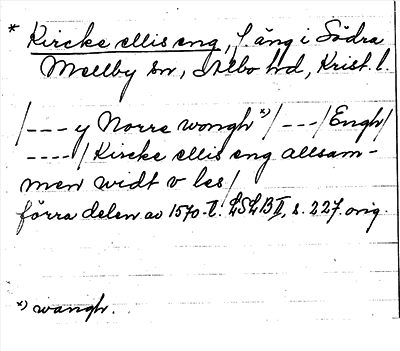 * Kircke ellis eng, f. äng i Södra
Mellby sn, Albo hd, Krist. l.
/--- y Norre wongh *)/ ---/Engh/
----/ Kircke ellis eng allsam-
men widt v les/
förra delen av 1570-t. LSLB II, s. 227. orig.
*) wangh.